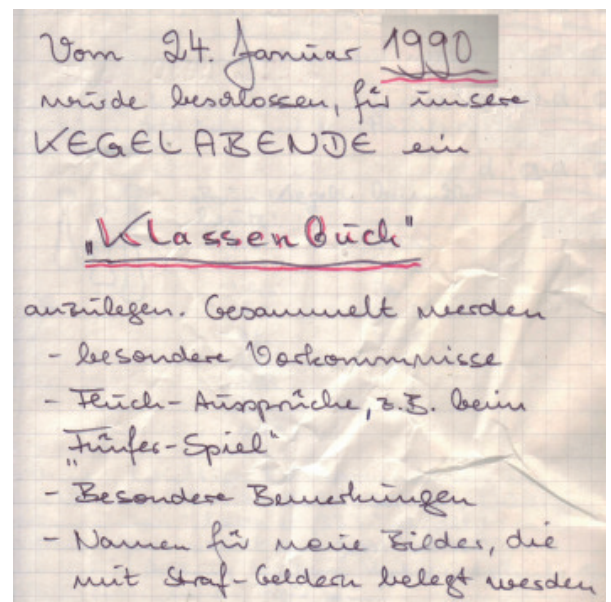 Vom 24. Januar 1990
wurde beschlossen, für unsere
KEGELABENDE ein
„Klassenbuch"
anzulegen. Gesammelt werden
- besondere Vorkommnisse
- Fluch-Aussprüche, z.B. beim
„Fünfer-Spiel"
- Besondere Bemerkungen
- Namen für neue Bilder, die
mit Straf-Geldern belegt werden